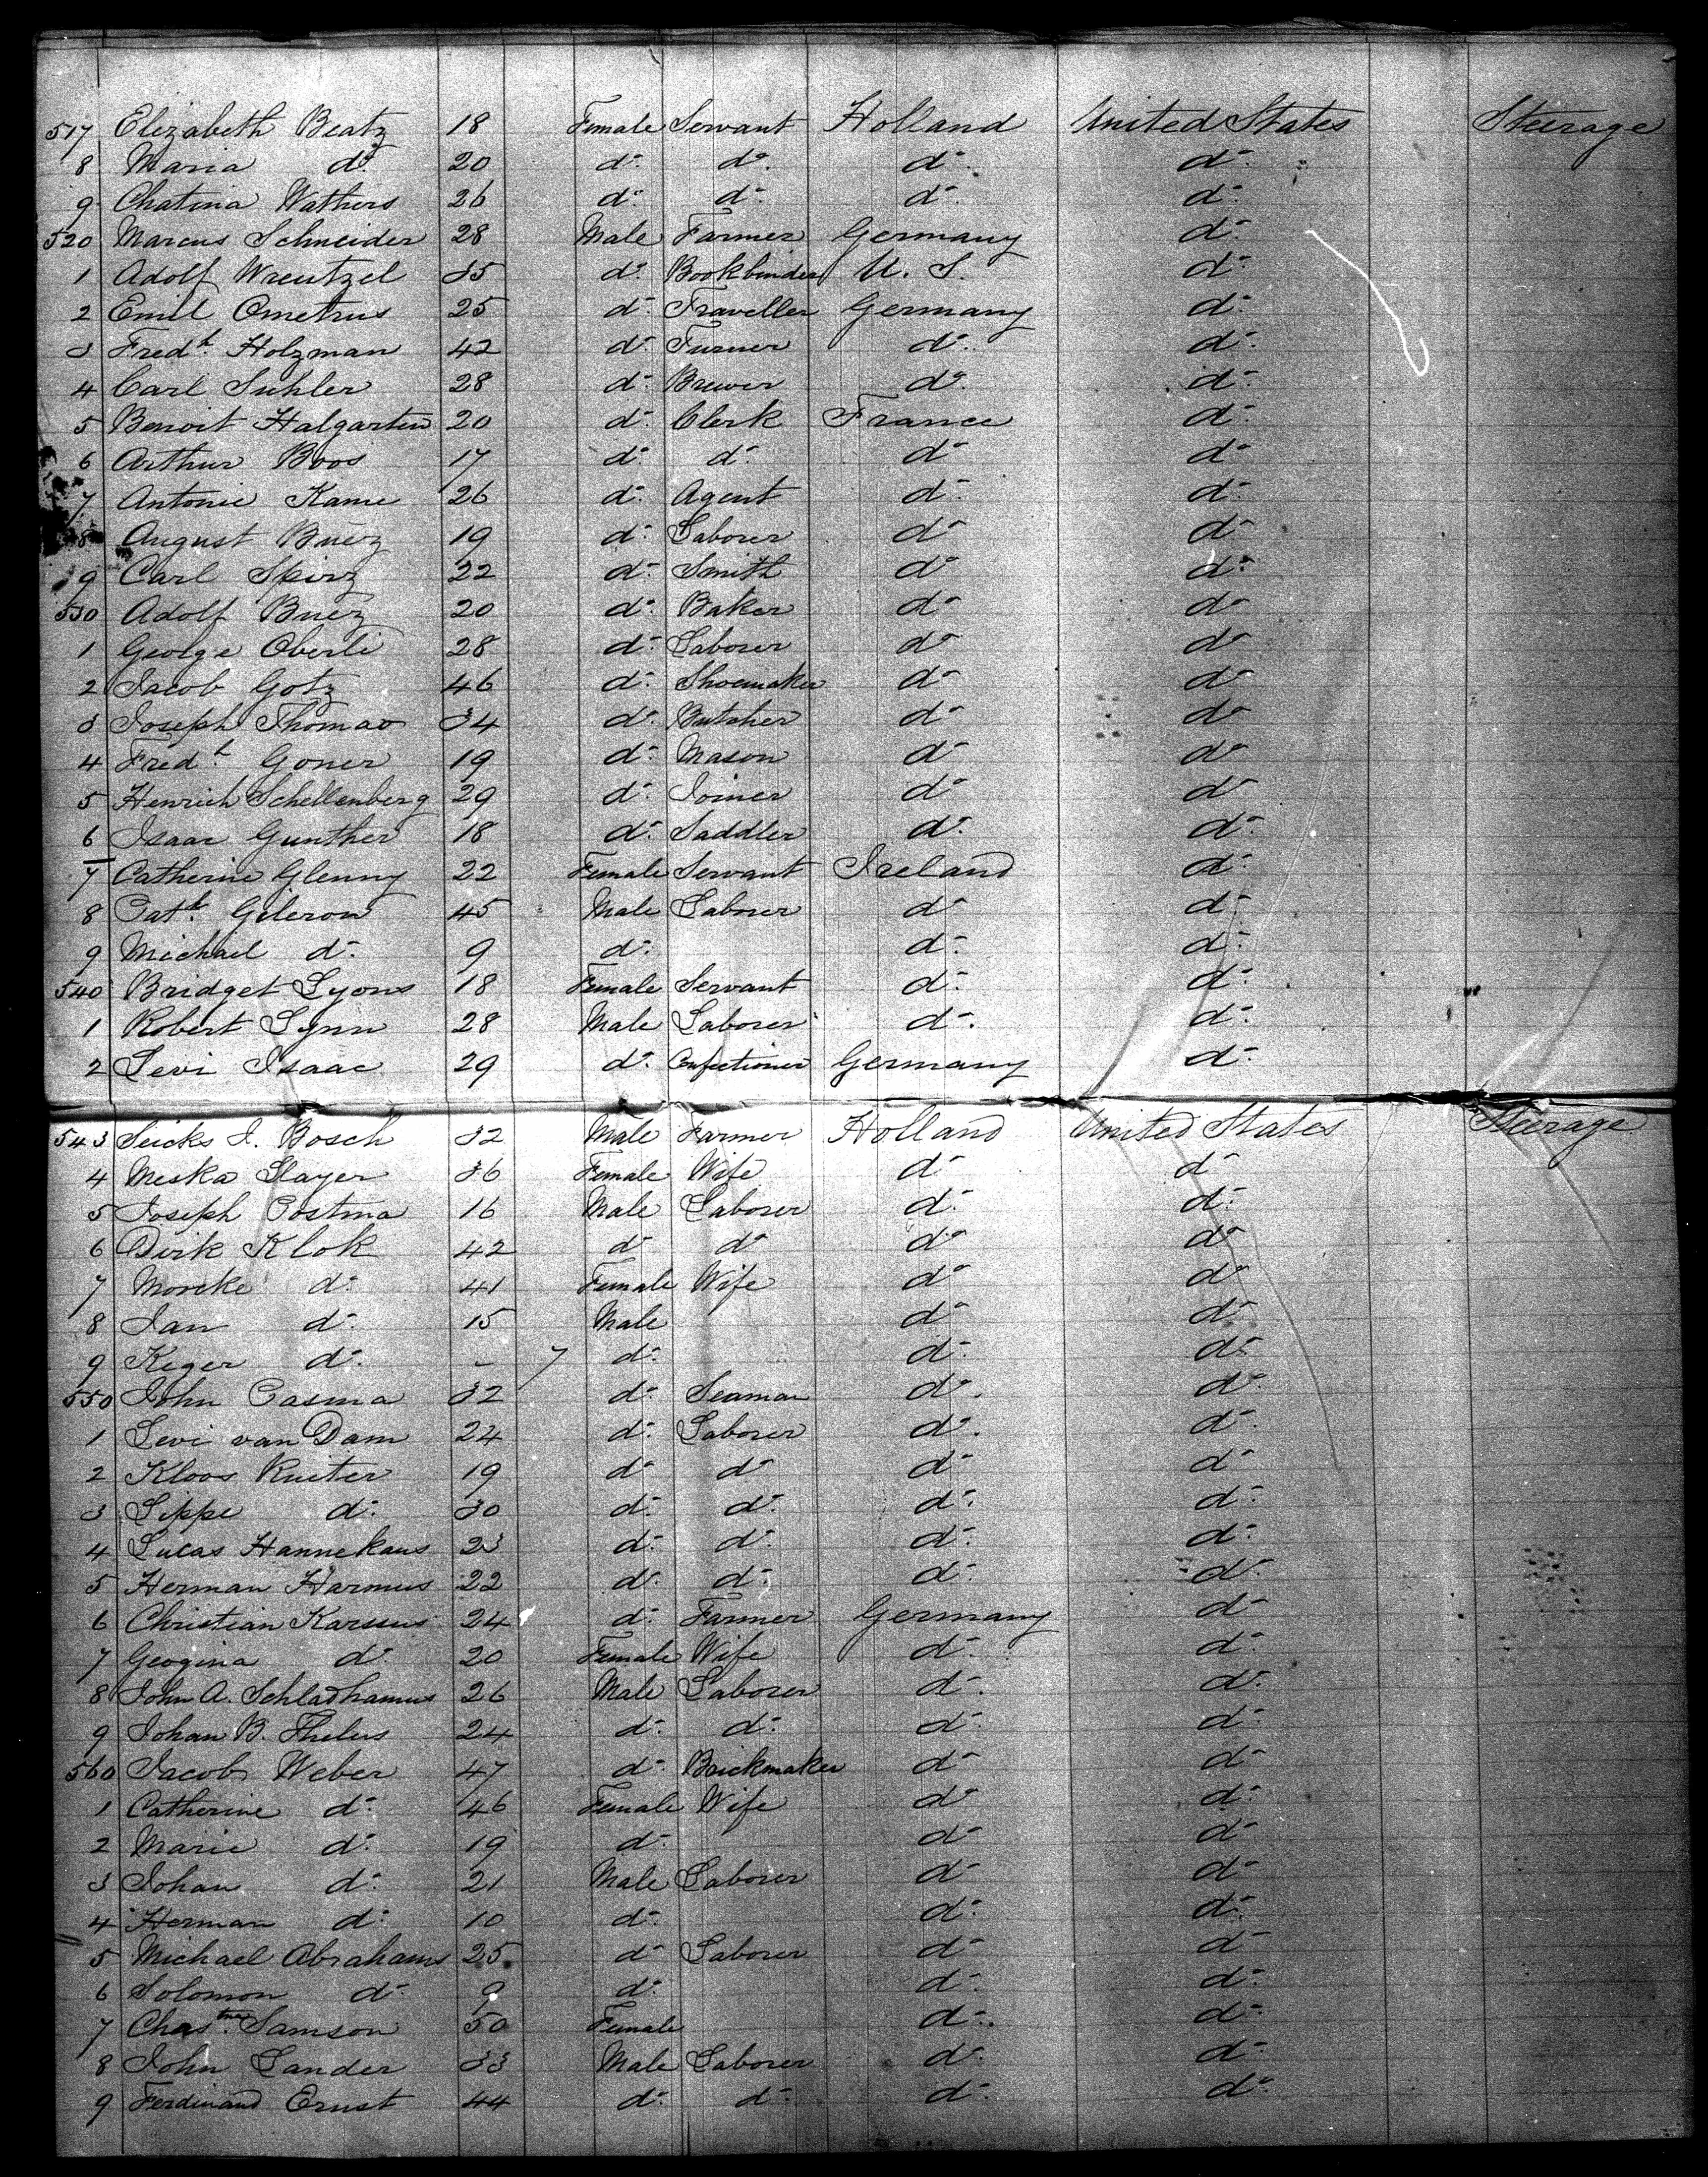 517 Elizabeth Beatz 18 Female Servant Holland United States Steerage
8 Maria do 20 do do do do
9 Chatina Wathers 26 do do do do
520 Marcus Schneider 28 Male Farmer Germany do
1 Adolf Wrentzel 35 do Bookbinder U. S. do
2 Emil Ometrus 25 do Traveller Germany do
3 Fredk Holzman 42 do Turner do do
4 Carl Suhler 28 do Brewer do do
5 Benoit Halgarten 20 do Clerk France do
6 Arthur Boos 17 do do do do
7 Antonie Kame 26 do Agent do do
8 August Buez 19 do Laborer do do
9 Carl Spirz 22 do Smith do do
530 Adolf Buez 20 do Baker do do
1 George Oberli 28 do Laborer do do
2 Jacob Gotz 46 do Shoemaker do do
3 Joseph Thomas 34 do Butcher do do
4 Fredk Goner 19 do Mason do do
5 Henrich Schellenberg 29 do Joiner do do
6 Isaac Gunther 18 do Saddler do do
7 Catherine Glenny 22 Female Servant Ireland do
8 Patk Gileron 45 Male Laborer do do
9 Michael do 9 do do do
540 Bridget Lyons 18 Female Servant do do
1 Robert Lynn 28 Male Laborer do do
2 Levi Isaac 29 do Confectioner Germany do
543 Seicks J. Bosch 32 Male Farmer Holland United States Steerage
4 Meska Slayer 36 Female Wife do do
5 Joseph Postma 16 Male Laborer do do
6 Dirk Klok 42 do do do do
7 Morcke do 41 Female Wife do do
8 Jan do 15 Male do do
9 Keger do - 7 do do do
550 John Casma 32 do Seaman do do
1 Levi van Dam 24 do Laborer do do
2 Kloos Ruiter 19 do do do do
3 Sippe do 30 do do do do
4 Lucas Hannekaus 23 do do do do
5 Herman Harmus 22 do do do do
6 Christian Karsus 24 do Farmer Germany do
7 Geogina do 20 Female Wife do do
8 John A. Schladhamus 26 Male Laborer do do
9 Johan B. Thelus 24 do do do do
560 Jacob Weber 47 do Brickmaker do do
1 Catherine do 46 Female Wife do do
2 Marie do 19 do do do
3 Johan do 21 Male Laborer do do
4 Herman do 10 do do do
5 Michael Abrahams 25 do Laborer do do
6 Solomon do 9 do do do
7 Chastne Samson 50 Female do do
8 John Lander 33 Male Laborer do do
9 Ferdinand Ernst 44 do do do do